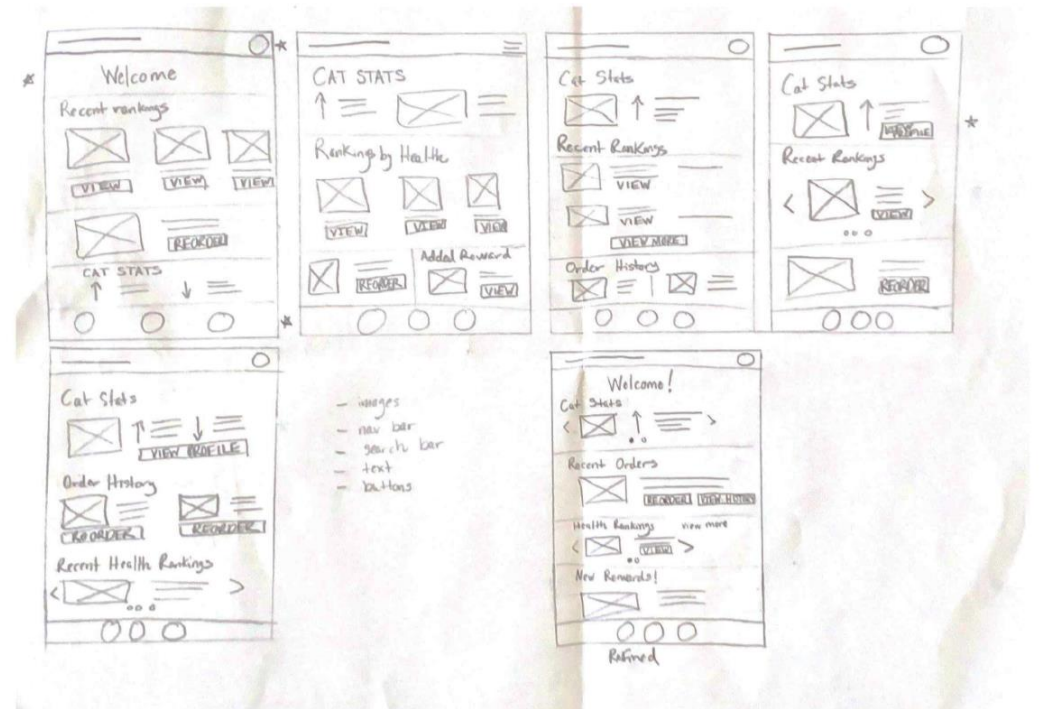 Welcome
Recent rankings
VIEW VIEW VIEW
REORDER
CAT STATS
CAT STATS
Rankings by Health
VIEW VIEW VIEW
Added Reward
REORDER VIEW
Cat Stats
Recent Rankings
VIEW
VIEW
VIEW MORE
Order History
Cat Stats
VIEW PROFILE
Recent Rankings
VIEW
REORDER
Cat Stats
VIEW PROFILE
Order History
REORDER REORDER
Recent Health Rankings
- images
- nav bar
- search bar
- text
- buttons
Welcome!
Cat Stats
Recent Orders
REORDER VIEW HISTORY
Health Rankings view more
VIEW
New Rewards!
Refined